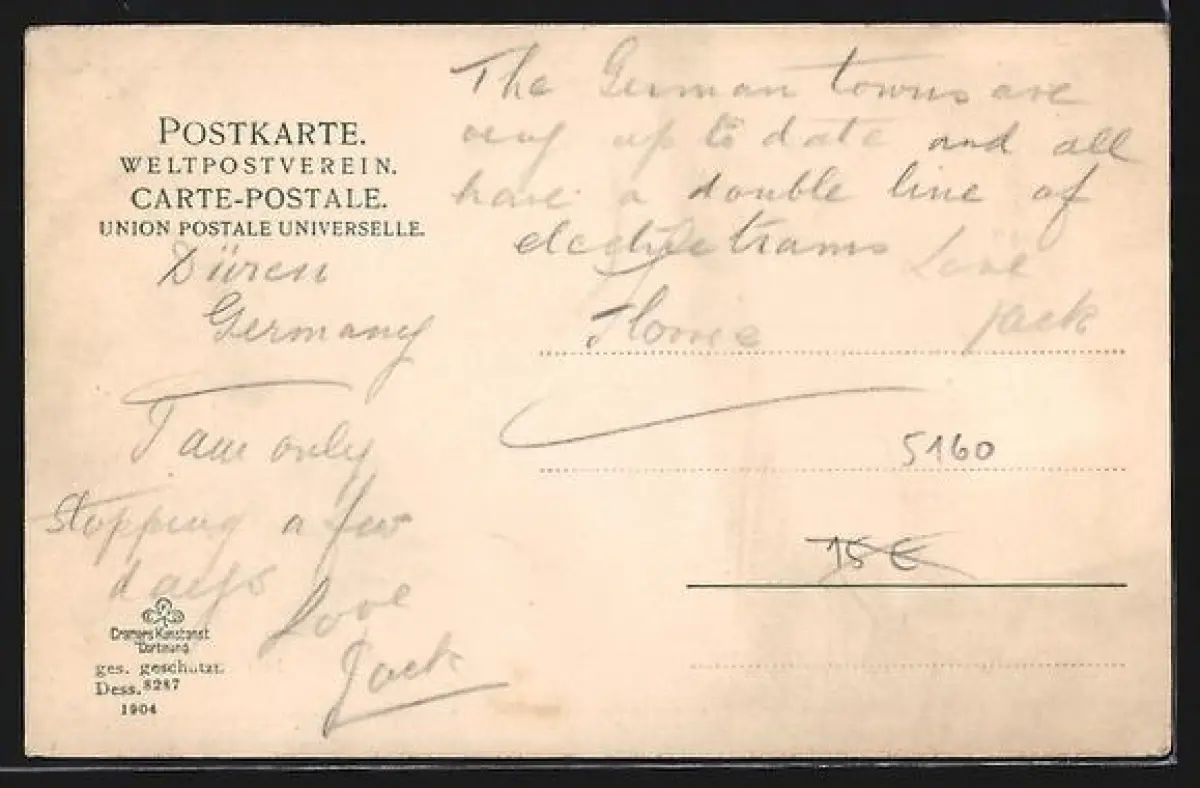 POSTKARTE.
WELTPOSTVEREIN.
CARTE-POSTALE.
UNION POSTALE UNIVERSELLE.
Düren
Germany
I am only
stopping a few
days
Love
Jack
The German towns are
very up to date and all
have a double line of
electric trams
Love
Jack
Home
5160
15 €
Cramers Kunstanst
Dortmund
ges. geschützt.
Dess. 8287
1904